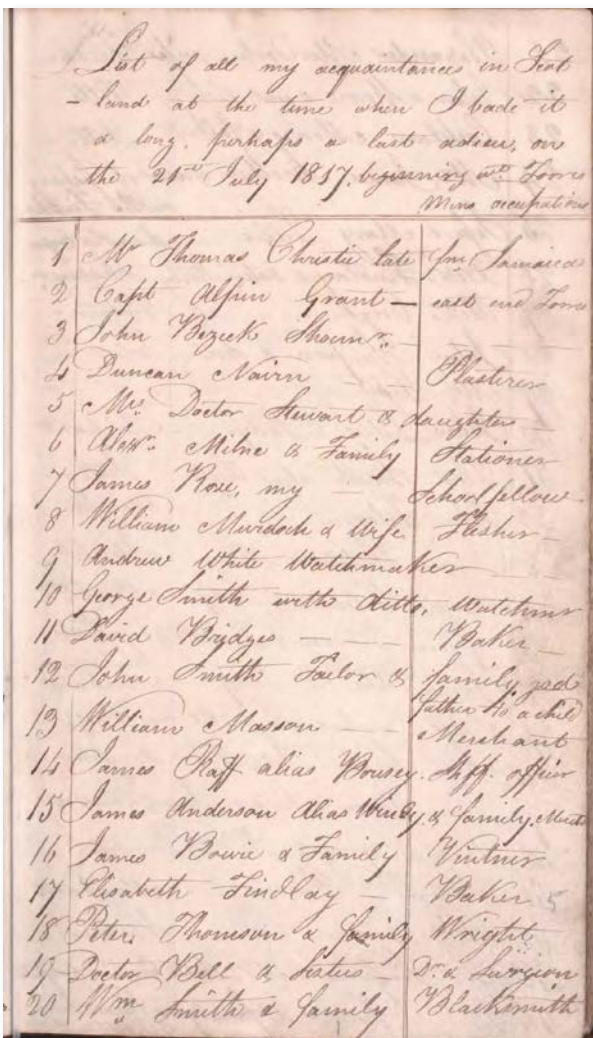 List of all my acquaintances in Scot
- land at the time when I bade it
a long, perhaps a last adieu, on
the 21st July 1837, beginning wt. Forres
Mens occupations
1 Mr Thomas Christie late fm Jamaica
2 Capt Alpin Grant — east end Forres
3 John Bezeck Shoemr.
4 Duncan Nairn Plasterer
5 Mrs. Doctor Stewart & daughters
6 Alexr. Milne & Family Stationer
7 James Rose, my Schoolfellow
8 William Murdoch & Wife Flesher
9 Andrew White Watchmaker
10 George Smith with ditto, Watchmr
11 David Bridges Baker
12 John Smith Tailor & family
father to a child
13 William Masson Merchant
14 James Raff alias Bousey. Shff. officer
15 James Anderson Alias Windy & family. Mercht
16 James Bowie & Family Vintner
17 Elisabeth Findlay Baker 5
18 Peter Thomson & family Wright
19 Doctor Bell & Sisters Dr. & Surgion
20 Wm Smith & family Blacksmith